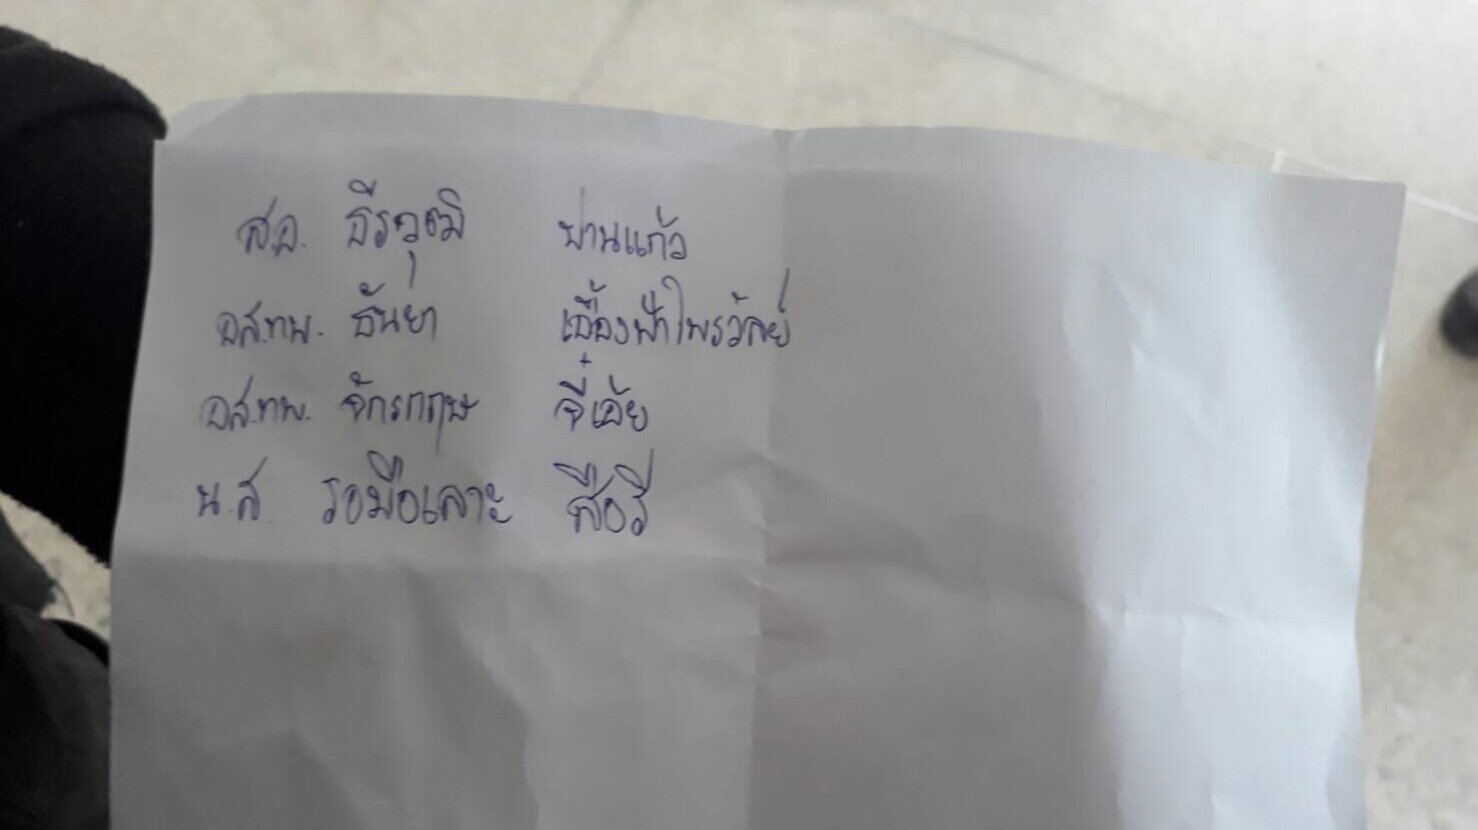 ส.อ. ธีรวุฒิ ปานแก้ว
อส.ทพ. ธันยา เฟื่องฟ้าไพรวัลย์
อส.ทพ. จักรกฤษ จี๋เอ้ย
น.ส รอมือเลาะ สือรี